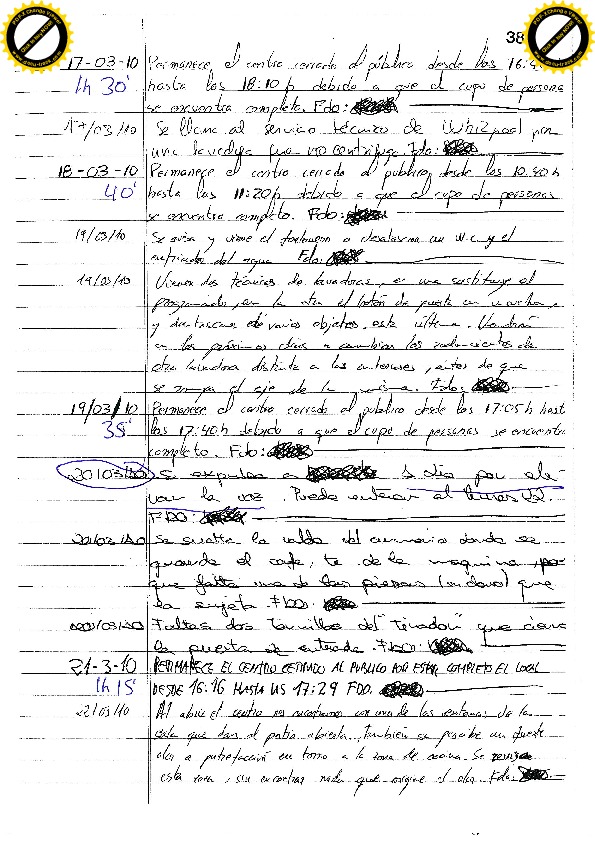 38
17-03-10 Permanece el centro cerrado al público desde las 16:4
1h 30' hasta las 18:10 h debido a que el cupo de persona
se encuentra completo. Fdo:
17/03/10 Se llama al servicio técnico de Whirpool por
una lavadora que no centrifuga. Fdo:
18-03-10 Permanece el centro cerrado al público desde las 10:40 h
40' hasta las 11:20 h debido a que el cupo de personas
se encuentra completo. Fdo:
19/03/10 Se avisa y viene el fontanero a desatascar un w.c y el
enfriador del agua Fdo:
19/03/10 Vienen dos técnicos de lavadoras, en una sustituye el
programador, en la otra el botón de puesta en marcha,
y desatascan de varios objetos esta última. Vendrán
en los próximos días a cambiar los rodamientos de
otra lavadora distinta a las anteriores, antes de que
se rompa el eje de la misma. Fdo:
19/03/10 Permanece el centro cerrado al público desde las 17:05 h hast
35' las 17:40 h debido a que el cupo de personas se encuentra
completo. Fdo:
20/03/10 Se expulsa a 1 día por ele-
var la voz. Puede entrar el lunes 22.
FDO:
20/03/10 Se suelta la balda del armario donde se
guarda el cafe, te de la maquina, por
que falta una de las piezas (un clavo) que
la sujeta. FDO.
20/03/10 Faltan dos tornillos del "tirador" que cierra
la puerta de entrada. FDO:
21-3-10 PERMANECE EL CENTRO CERRADO AL PUBLICO POR ESTAR COMPLETO EL LOCAL
1h 15' DESDE 16:16 HASTA LAS 17:29 FDO.
22/03/10 Al abrir el centro nos encontramos con una de las ventanas de la
sala que dan al patio abierta, también se percibe un fuerte
olor a putrefacción en torno a la zona de cocina. Se revisa
esta zona, sin encontrar nada que origine el olor. Fdo: